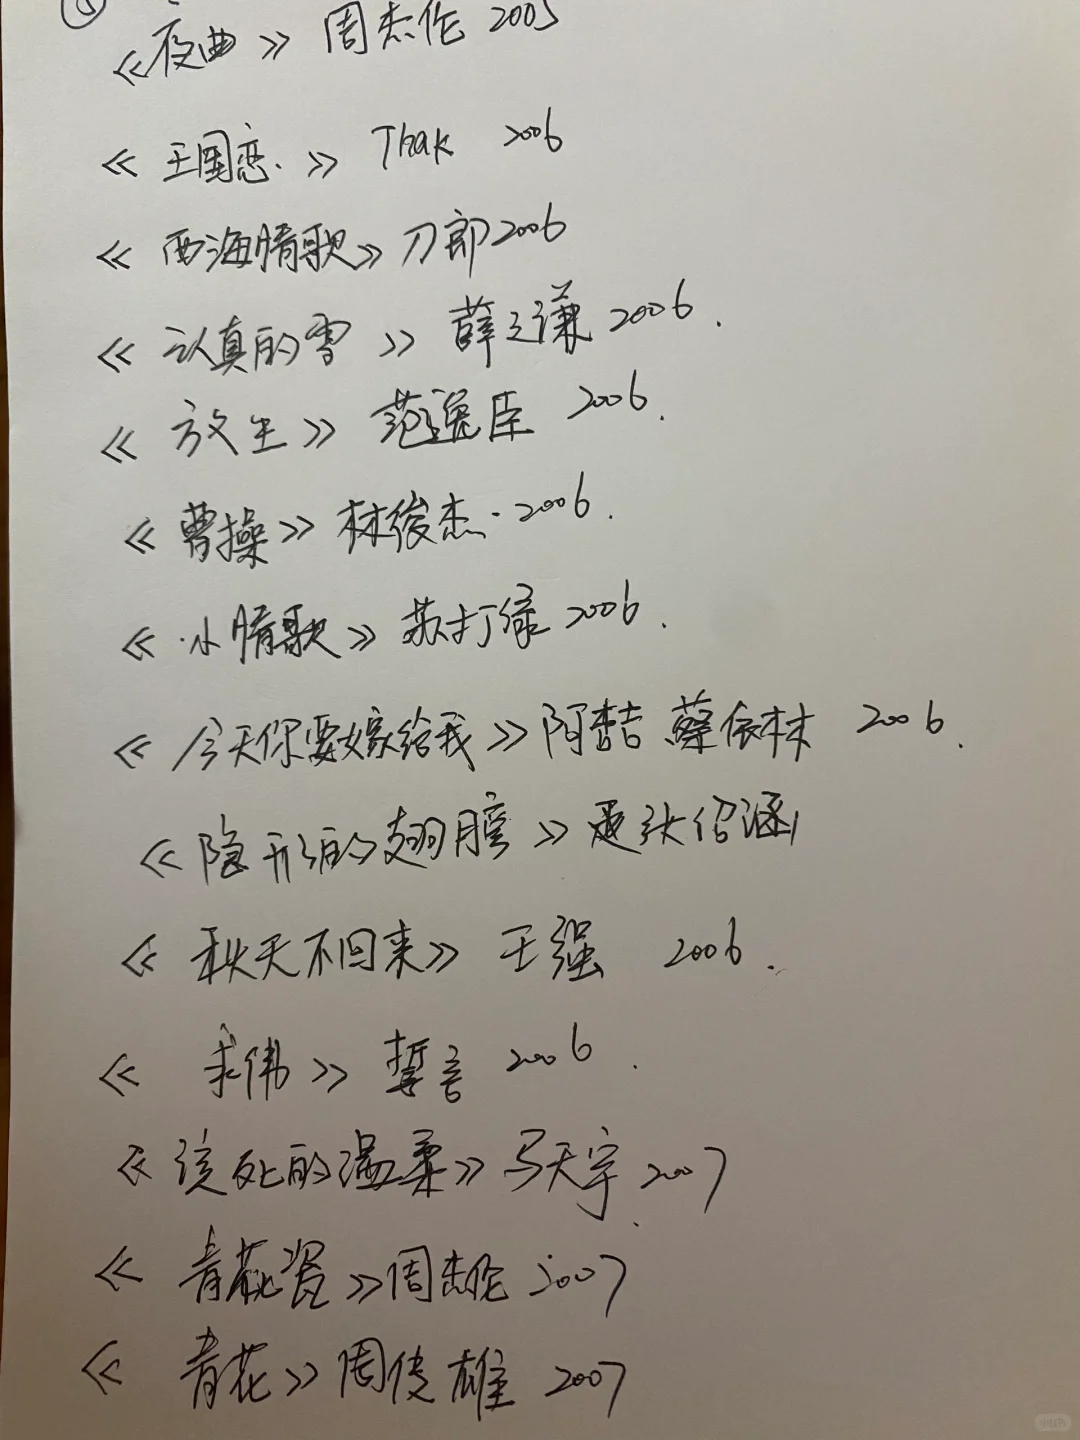 ⑤
《夜曲》 周杰伦 2005
《王国恋.》 Thak 2006
《西海情歌》刀郎2006
《认真的雪》薛之谦2006.
《放生》范逸臣 2006.
《曹操》林俊杰.2006.
《小情歌》苏打绿2006.
《今天你要嫁给我》陶喆 蔡依林 2006.
《隐形的翅膀》张韶涵
《秋天不回来》王强 2006.
《求伟》誓言2006.
《该死的温柔》马天宇2007
《青花瓷》周杰伦2007
《青花》周传雄 2007